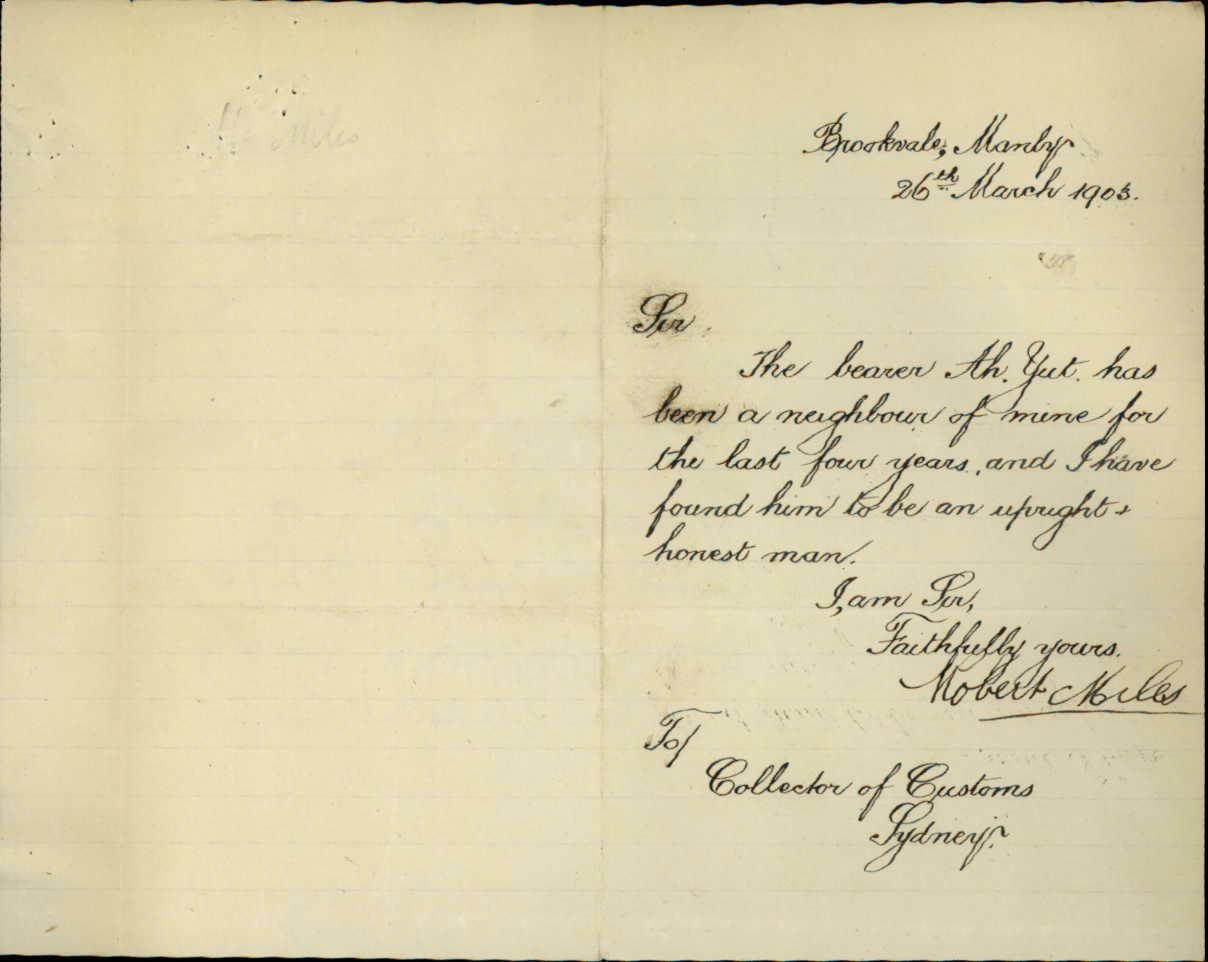 Miles
Brookvale, Manly
26th March 1903.
Sir
The bearer Ah. Yut. has
been a neighbour of mine for
the last four years, and I have
found him to be an upright +
honest man.
I, am Sir,
Faithfully yours.
Robert Miles
To/
Collector of Customs
Sydney.